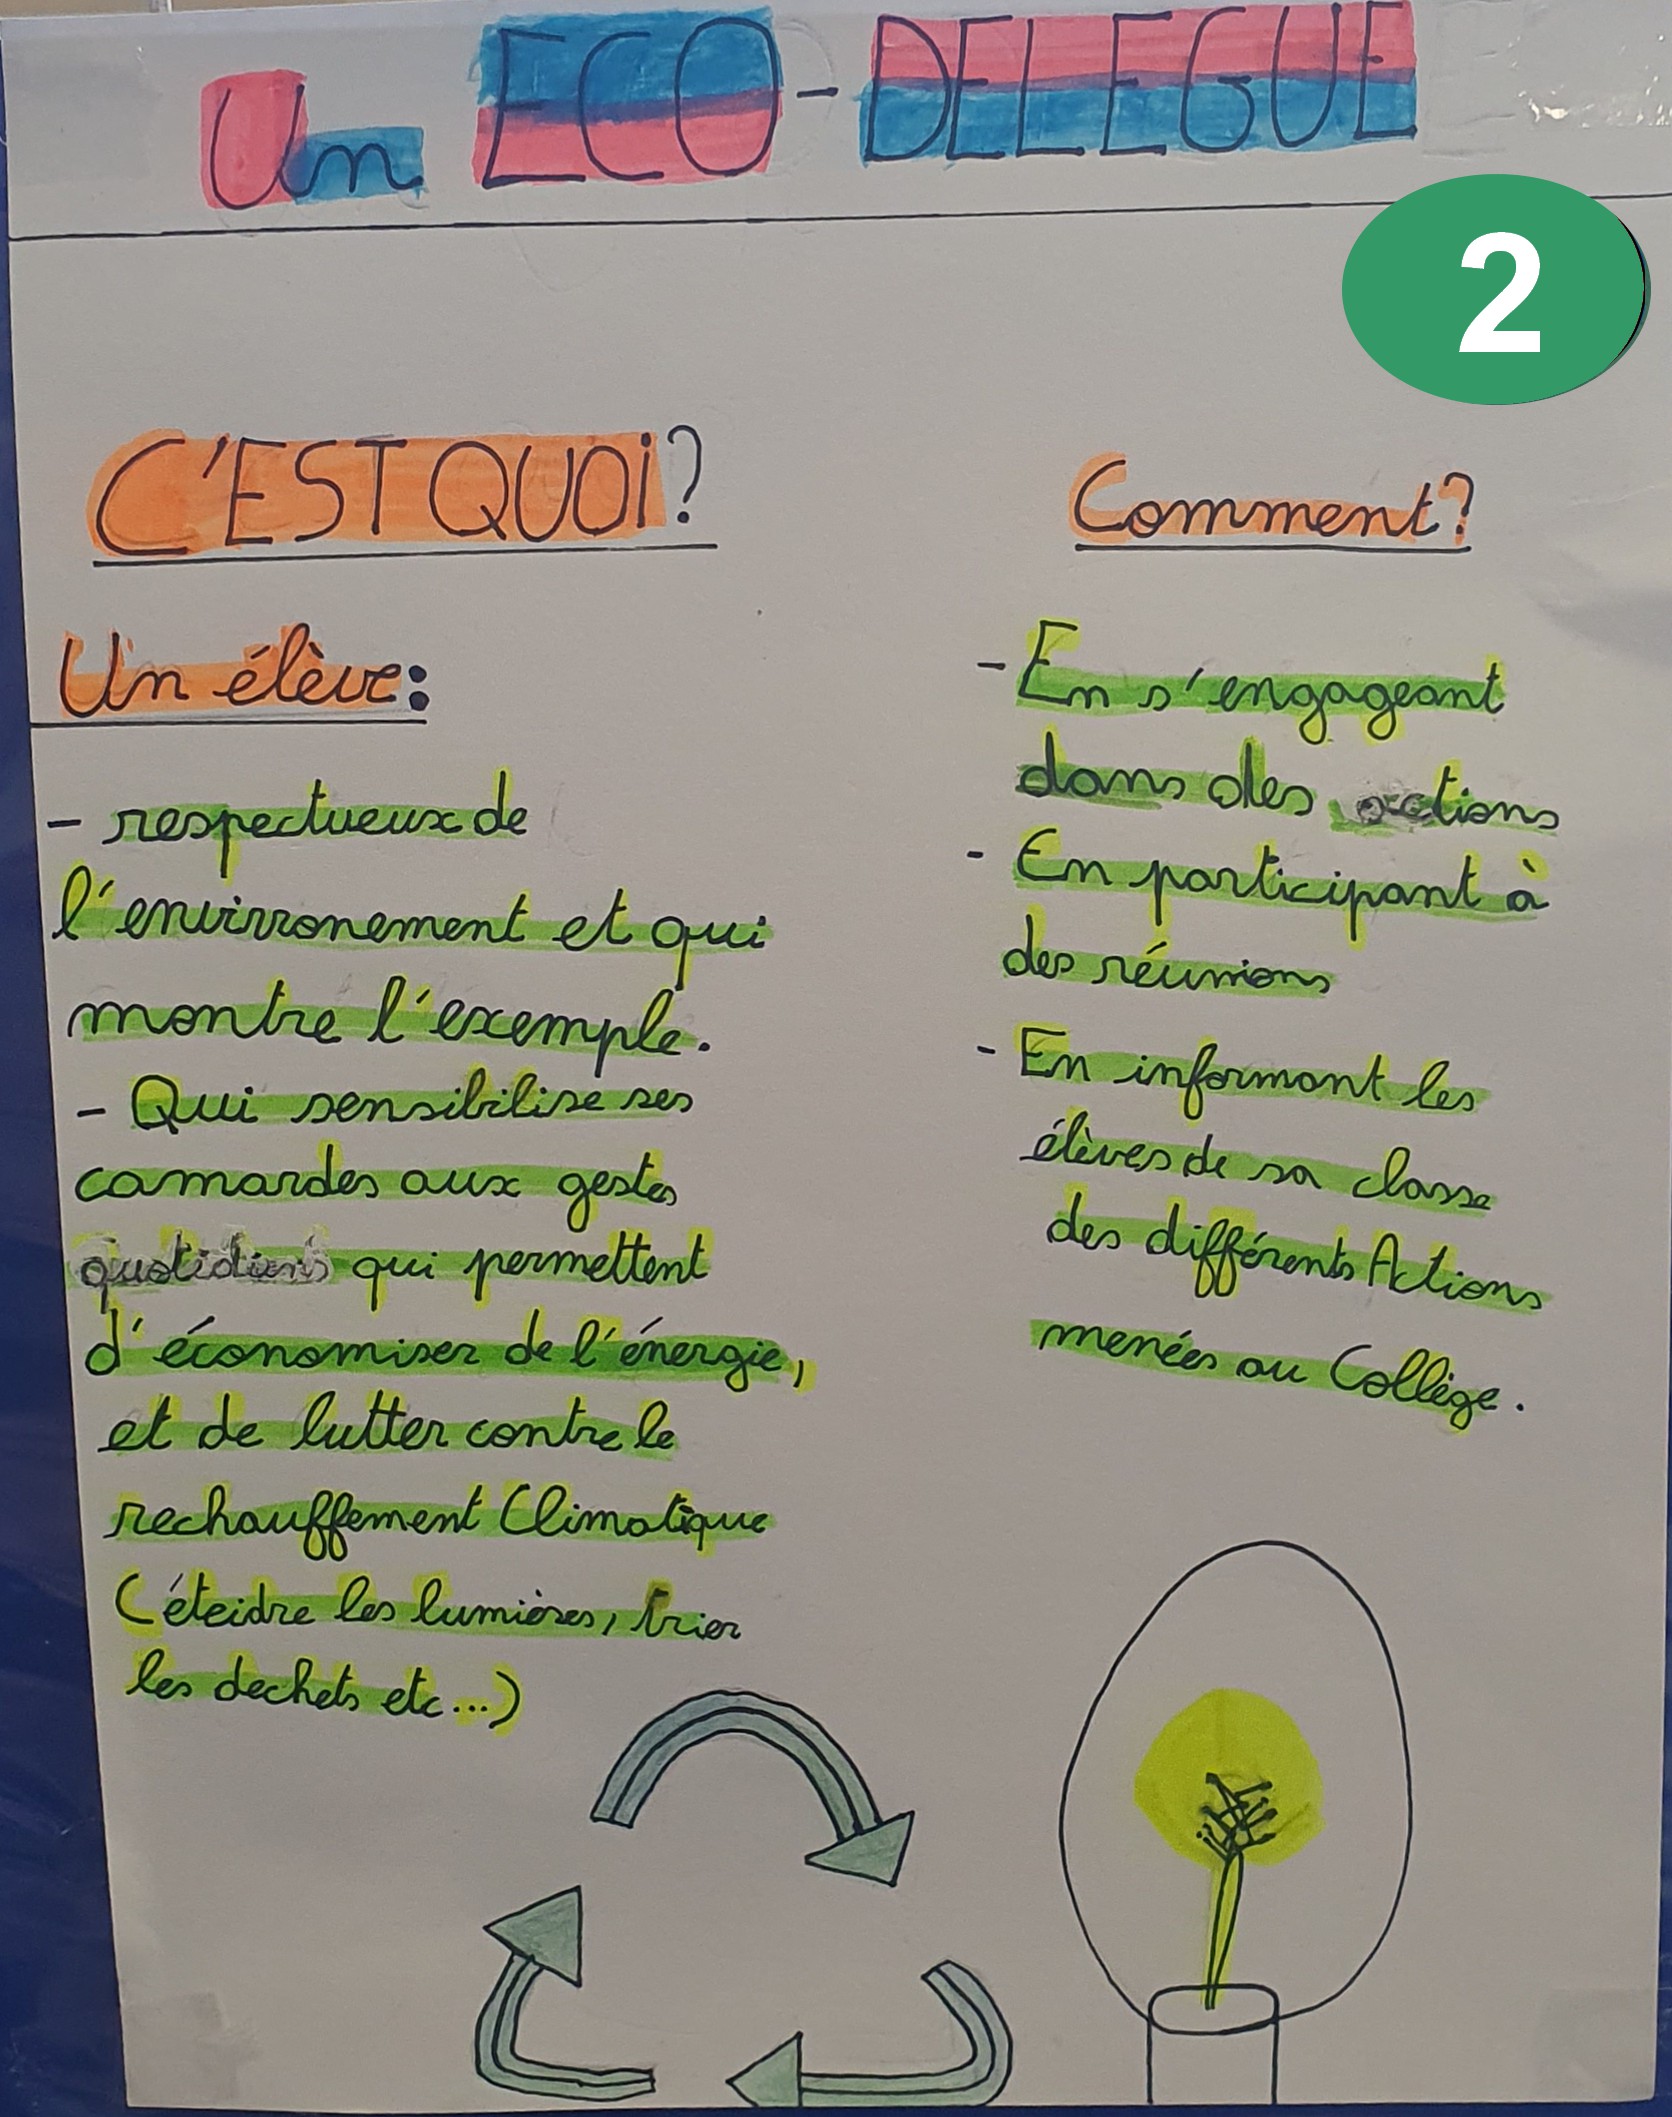 Un ECO-DELEGUE
2
C'EST QUOI?
Un élève:
- respectueux de
l'envirronement et qui
montre l'exemple.
- Qui sensibilise ses
camardes aux gestes
quotidiens qui permettent
d'économiser de l'énergie,
et de lutter contre le
rechauffement Climatique
(éteidre les lumières, trier
les dechets etc...)
Comment?
- En s'engageant
dans des actions
- En participant à
des réunions
- En informant les
élèves de sa classe
des différents Actions
menées au Collège.